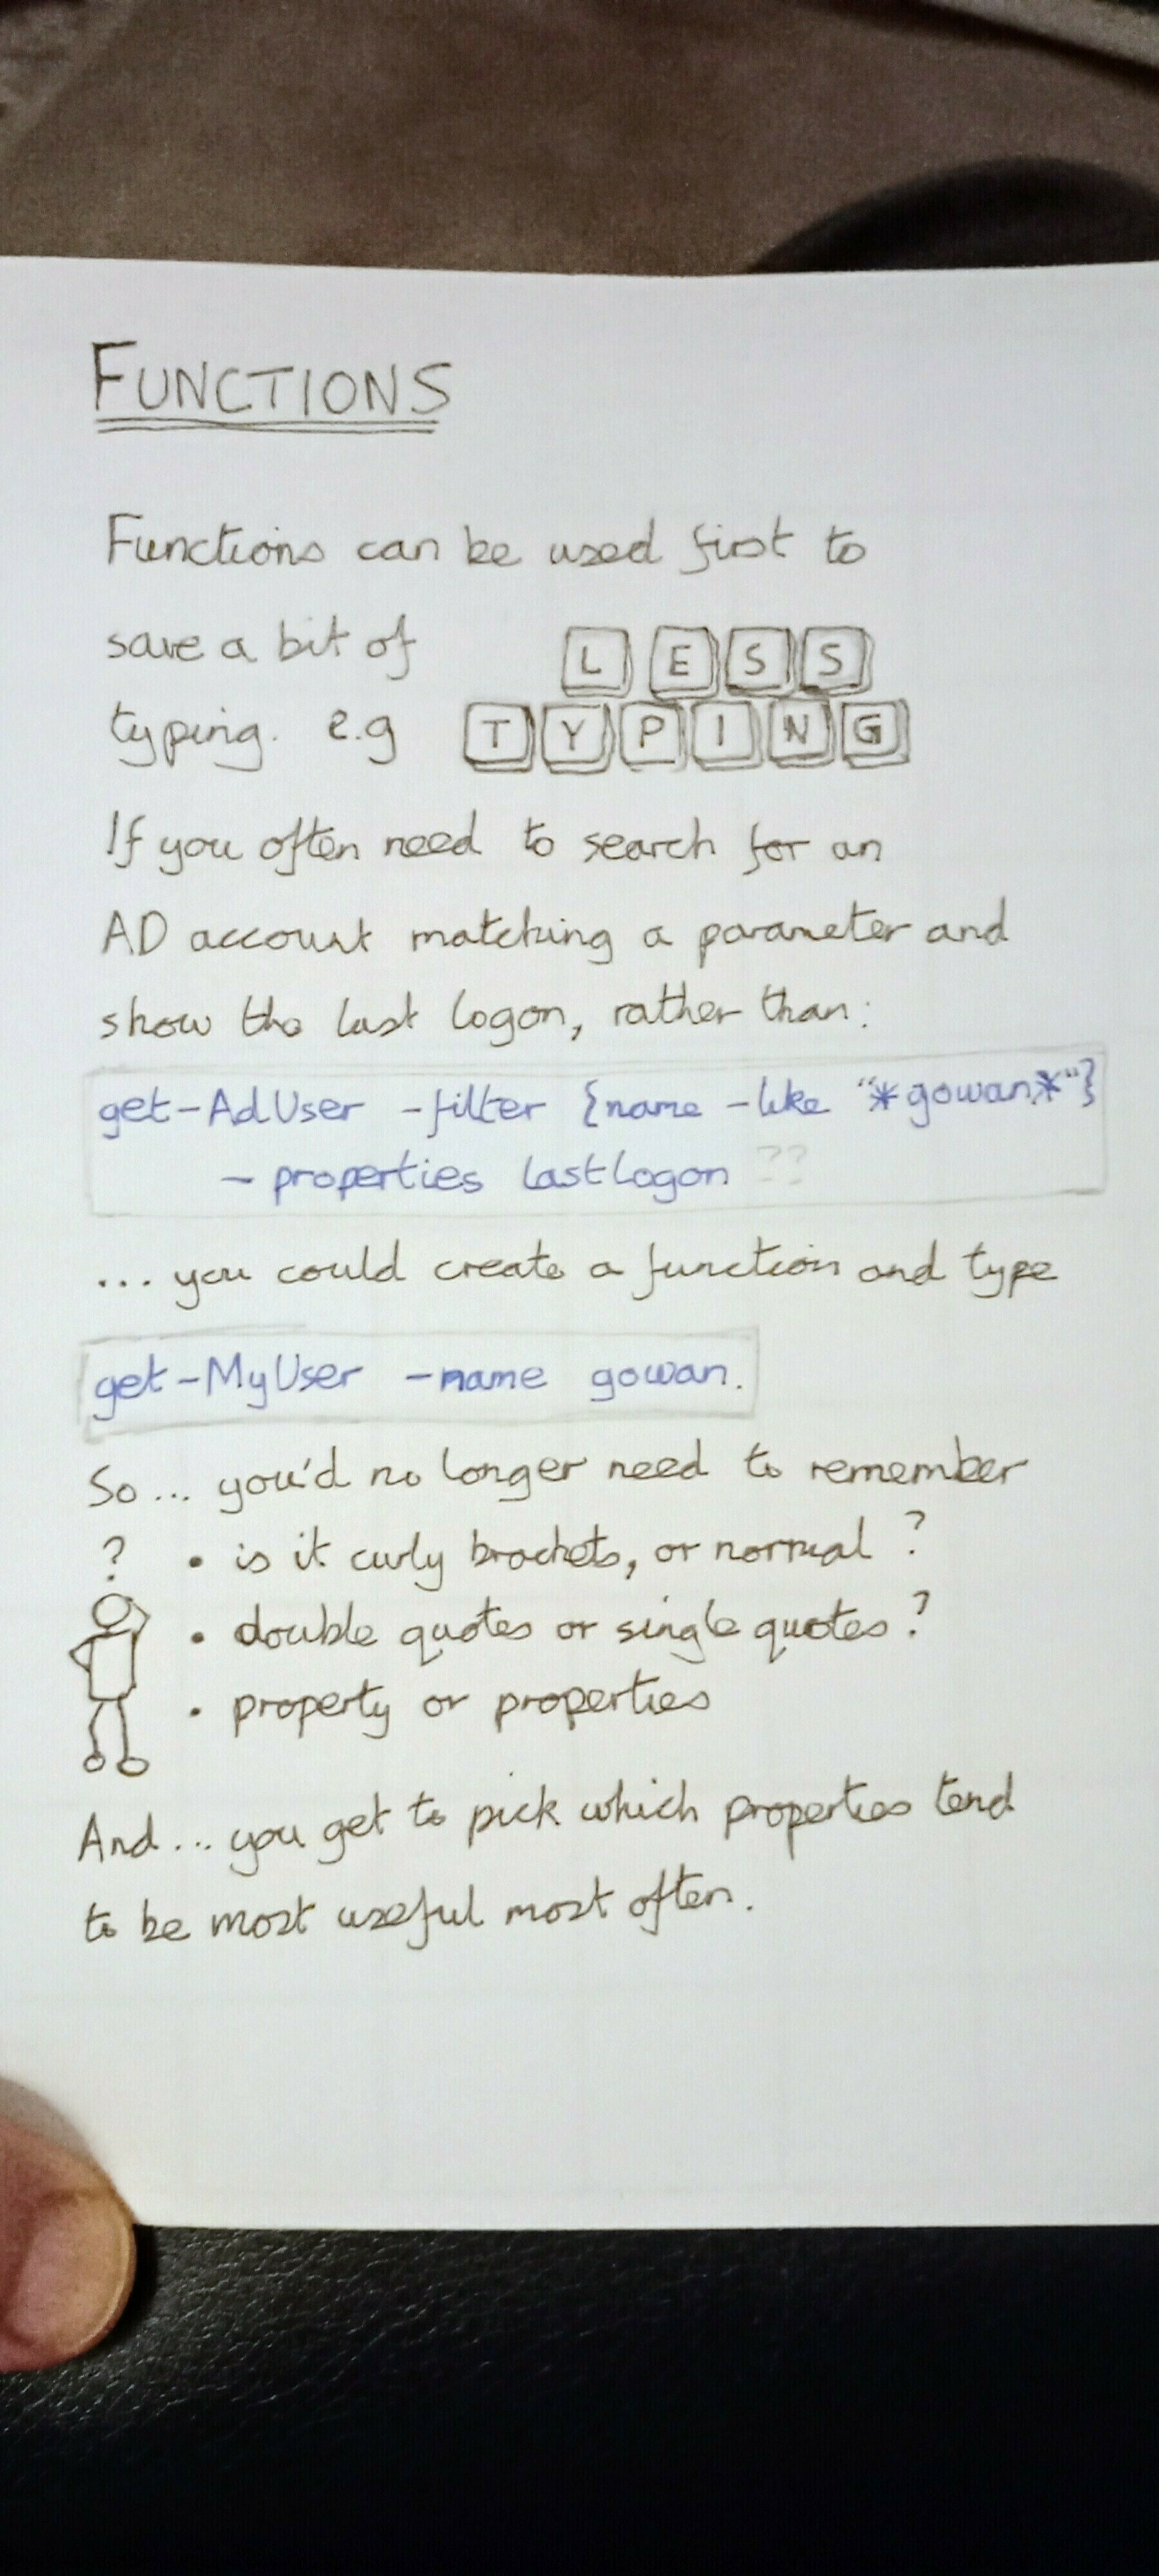 FUNCTIONS
Functions can be used first to
save a bit of
typing. e.g
LESS
TYPING
If you often need to search for an
AD account matching a parameter and
show the last logon, rather than:
get-AdUser -filter {name -like "*gowan*"}
- properties lastlogon ??
... you could create a function and type
get-MyUser -name gowan.
So... you'd no longer need to remember
? • is it curly brackets, or normal ?
• double quotes or single quotes ?
• property or properties
And... you get to pick which properties tend
to be most useful most often.